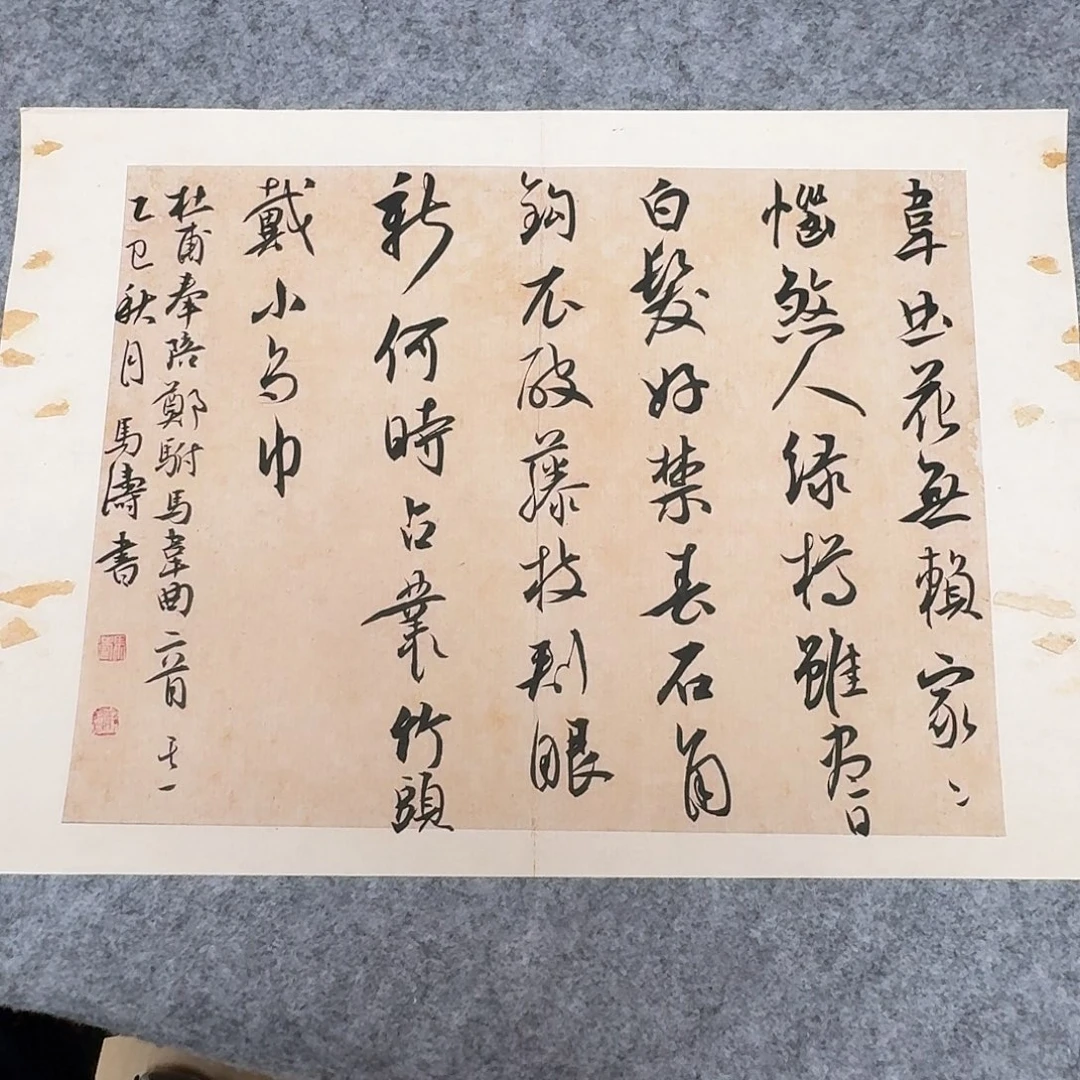 韋曲花無賴家〻
惱煞人緑樽雖盡日
白髮好禁春石角
鈎衣破藤枝刺眼
新何時占叢竹頭
戴小烏巾
杜甫奉陪鄭駙馬韋曲二首 其一
乙巳秋月 馬濤書